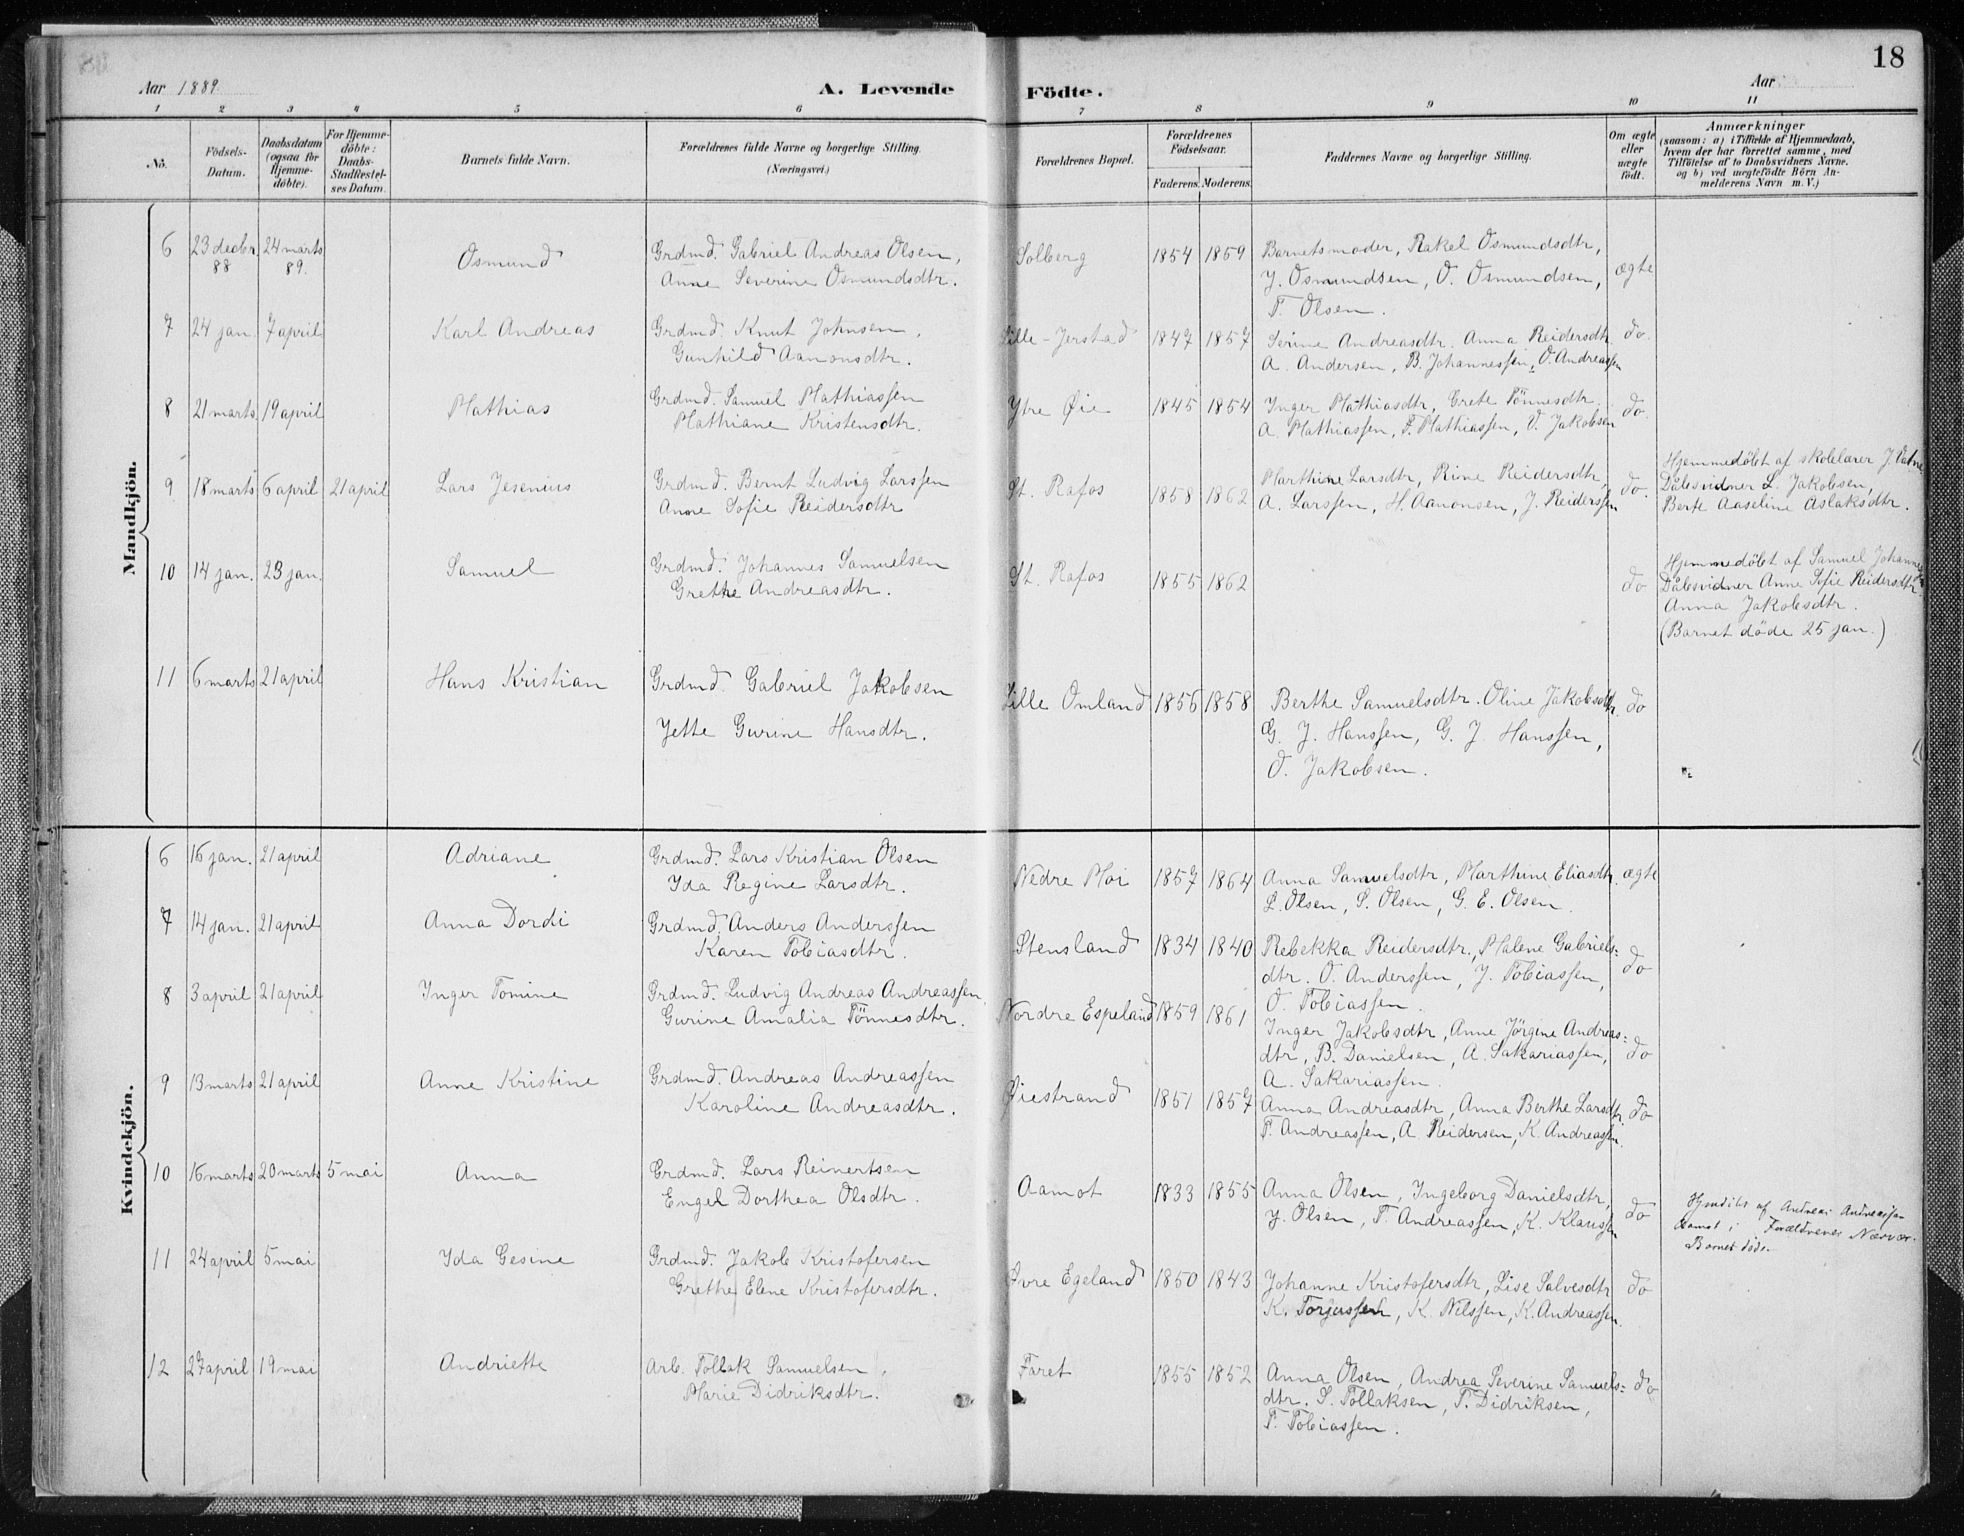 18
Aar 1889
A. Levende Födte.
Aar
1 2 3 4 5 6 7 8 9 10 11
No.
Födsels-Datum.
Daabsdatum (ogsaa for Hjemme-döbte).
For Hjemme-döbte: Daabs-Stadfæstel-ses Datum.
Barnets fulde Navn.
Forældrenes fulde Navne og borgerlige Stilling.
(Næringsvei.)
Forældrenes Bopæl.
Forældrenes Födselsaar.
Faderens. Moderens.
Faddernes Navne og borgerlige Stilling.
Om ægte eller uægte födt.
Anmærkninger
(saasom: a) i Tilfælde af Hjemmedaab,
hvem der har forrettet samme, med
Tilföielse af to Daabsvidners Navne.
og b) ved uægtefödte Börn An-
melderens Navn m. V.)
Mandkjön.
6 23 decbr. 88 24 marts 89. Osmund Grdmd. Gabriel Andreas Olsen, Solberg 1854 1859 Barnets moder, Rakel Osmundsdtr, ægte
Anne Severine Osmundsdtr. J. Osmundsen, O. Osmundsen,
T. Olsen.
7 24 jan. 7 april Karl Andreas Grdmd. Knut Johnsen, Lille-Jerstad 1847 1857 Serine Andreasdtr. Anna Reidersdtr. do.
Gunhild Aanonsdtr. A. Andersen, B. Johannesſen, O. Andreasſen
8 21 marts 19 april Mathias Grdmd. Samuel Mathiasſen Ytre Øie 1845 1854 Inger Mathiasdtr, Grete Tönnesdtr. do.
Mathiane Kristensdtr. A. Mathiasſen, T. Mathiasſen, O. Jakobsen
9 18 marts 6 april 21 april Lars Jesenius Grdmd. Bernt Ludvig Larsſen St. Rafos 1858 1862 Marthine Larsdtr, Rine Reidersdtr, do. Hjemmedöbt af skolelærer J. Vatne
Anne Sofie Reidersdtr A. Larsſen, H. Aanonsen, J. Reidersſen Dåbsvidner L. Jakobsen,
Berte Aaseline Aslaksdtr.
10 14 jan. 23 jan. Samuel Grdmd. Johannes Samuelsen St. Rafos 1855 1862 do Hjemmedöbt af Samuel Johannesſen
Grethe Andreasdtr. Dåbsvidner Anne Sofie Reidersdtr.
Anna Jakobsdtr.
(Barnet döde 25 jan.)
11 6 marts 21 april Hans Kristian Grdmd. Gabriel Jakobsen Lille Omland 1856 1858 Berthe Samuelsdtr. Oline Jakobsdtr. do
Jette Gurine Hansdtr. G. J. Hansſen, G. J. Hansſen,
O. Jakobsen.
Kvindekjön.
6 16 jan. 21 april Adriane Grdmd. Lars Kristian Olsen Nedre Moi 1857 1864 Anna Samuelsdtr, Marthine Eliasdtr. ægte
Ida Regine Larsdtr. L. Olsen, S. Olsen, G. E. Olsen.
7 14 jan. 21 april Anna Dordi Grdmd. Anders Andersſen Stensland 1834 1840 Rebekka Reidersdtr., Malene Gabriels= do
Karen Tobiasdtr. dtr. O. Andersſen, J. Tobiasſen,
O. Tobiasſen.
8 3 april 21 april Inger Tomine Grdmd. Ludvig Andreas Andreasſen, Nordre Espeland 1859 1861 Inger Jakobsdtr, Anne Jörgine Andreas= do
Gurine Amalia Tönnesdtr. dtr, B. Danielsen, A. Sakariasſen,
A. Sakariasſen.
9 13 marts 21 april Anne Kristine Grdmd. Andreas Andreasſen Øiestrand 1851 1857 Anna Andreasdtr, Anna Berthe Larsdtr. do
Karoline Andreasdtr. T. Andreasſen, A. Reidersen, K. Andreasſen.
10 16 marts 20 marts 5 mai Anna Grdmd. Lars Reinertsen Aamot 1833 1855 Anna Olsen, Ingeborg Danielsdtr, do Hjmdöbt af Andreas Andreasſen
Engel Dorthea Olsdtr. J. Olsen, T. Andreasſen, K. Klausſen Aamot i Forældrenes Nærvær.
Barnet döde.
11 24 april 5 mai Ida Gesine Grdmd. Jakob Kristofersen Øvre Egeland 1850 1843 Johanne Kristofersdtr, Lise Salvesdtr do
Grethe Elene Kristofersdtr. K. Torjusſen, K. Nilsſen, K. Andreasſen.
12 27 april 19 mai Andriette Arb. Tollak Samuelsen, Faret 1855 1852 Anna Olsen, Andrea Severine Samuels= do
Marie Didriksdtr. dtr. S. Tollaksen, T. Didriksen,
T. Tobiasſen.